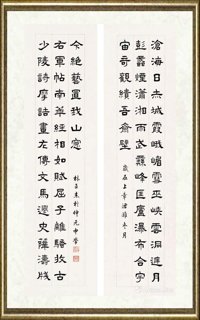 滄海日赤城霞峨嵋雪巫峽雲洞庭月
彭蠡煙瀟湘雨武彝峰匡廬瀑布合宇
宙奇觀繢吾齋壁
歲在上章涒灘冬月
少陵詩摩詰畫左傳文馬遷史薛濤牋
右軍帖南華經相如賦屈子離騷收古
今絕藝置我山窗